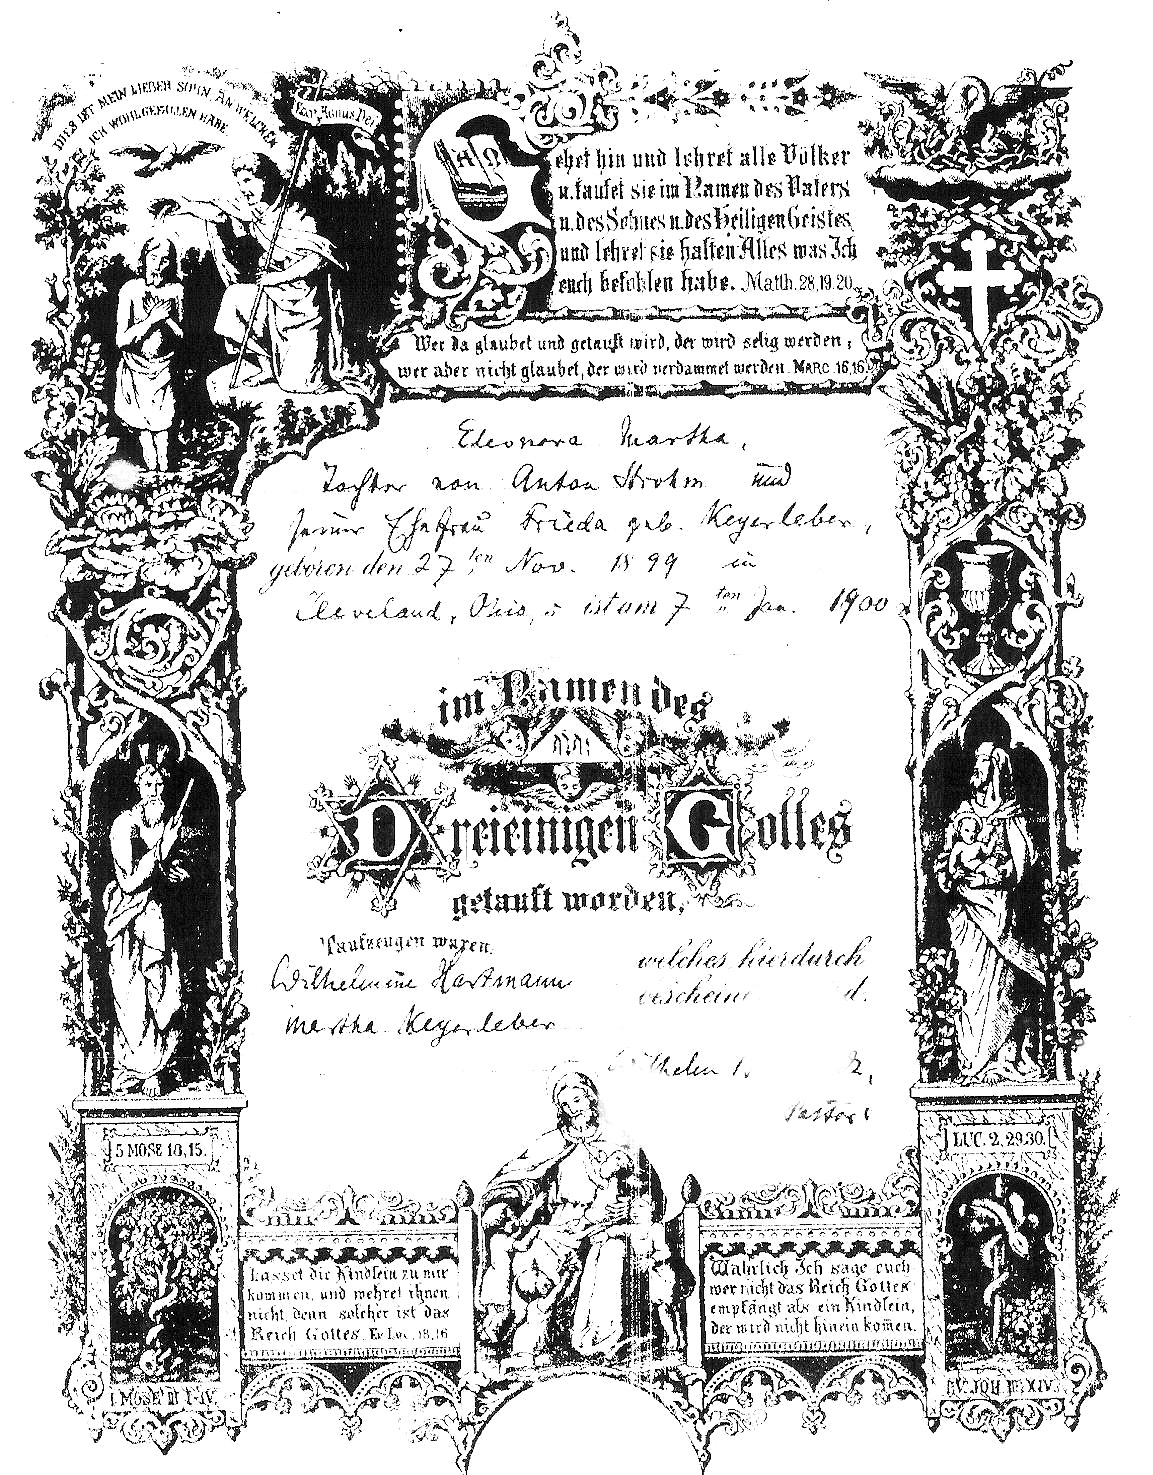 DIES IST MEIN LIEBER SOHN AN WELCHEM
ICH WOHLGEFALLEN HABE
Ecce Agnus Dei
Α Ω
Gehet hin und lehret alle Völker
u. taufet sie im Namen des Vaters
u. des Sohnes u. des Heiligen Geistes
und lehret sie halten Alles was Ich
euch befohlen habe. Matth. 28,19.20.
Wer da glaubet und getauft wird, der wird selig werden;
wer aber nicht glaubet, der wird verdammet werden. MARC. 16,16.
Eleonora Martha,
Tochter von Anton Strohm und
seiner Ehefrau Frieda geb. Keyerleber,
geboren den 27ten Nov. 1899 in
Cleveland, Ohio, ist am 7ten Jan. 1900
im Namen des
Dreieinigen Gottes
getauft worden,
Taufzeugen waren
Wilhelmine Hartmann
Martha Keyerleber
welches hierdurch
Pastor
5 MOSE 18,15.
LUC. 2, 29.30.
Lasset die Kindlein zu mir
kommen, und wehret ihnen
nicht, denn solcher ist das
Reich Gottes. Ev. Luc. 18,16
Wahrlich Ich sage euch
wer nicht das Reich Gottes
empfängt als ein Kindlein,
der wird nicht hinein komen.
1 MOSE III 1-IV.
EV. JOH. III. XIV.